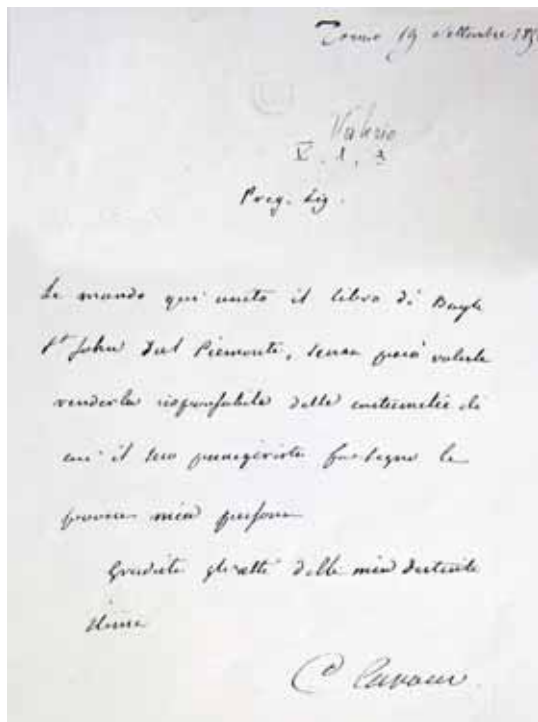 Torino 19 Settembre 185
Valerio
V. 1. 3
Preg. Sig.
Le mando qui unito il libro di Bayle
St John sul Piemonte, senza però volerla
rendere risponsabile delle contumelie di
cui il suo panegirista fa segno la
povera mia persona
Gradisca gli atti della mia distinta
stima
C Cavour